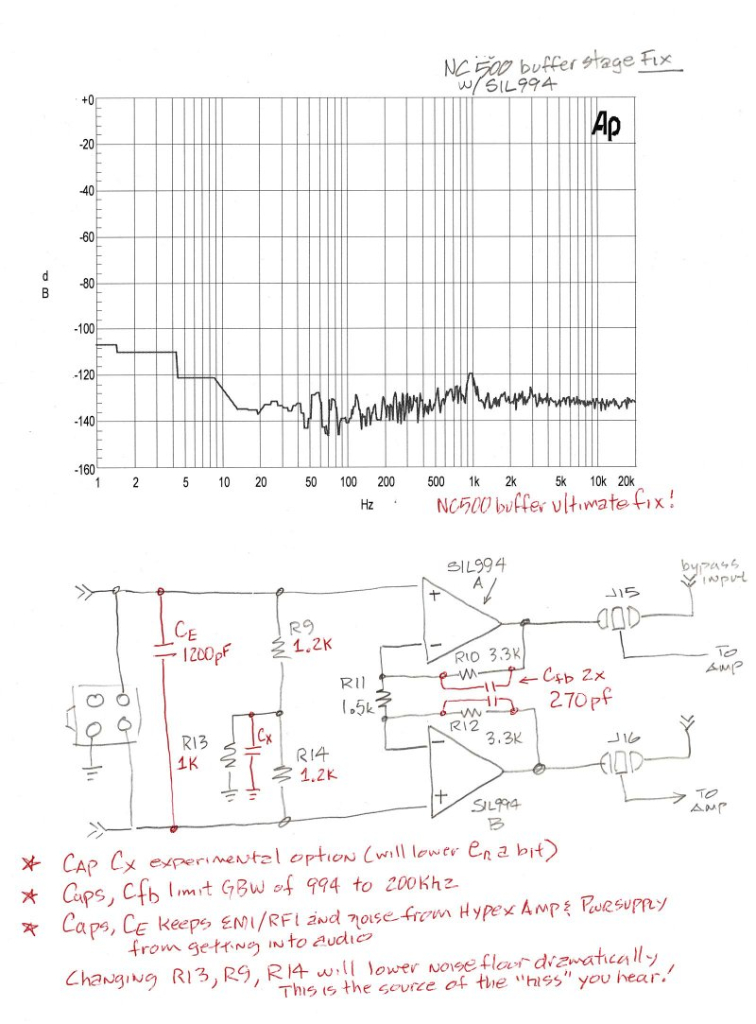 NC500 buffer stage Fix
w/ SIL994
+0
Ap
-20
-40
-60
-80
-100
-120
-140
-160
d
B
1 2 5 10 20 50 100 200 500 1k 2k 5k 10k 20k
Hz
NC500 buffer ultimate fix!
SIL994
A
bypass
input
J15
+
-
CE
1200pF
R9
1.2K
R10 3.3K
TO
AMP
Cfb 2x
270pf
R11
1.5k
Cx
R13
1K
R14
1.2K
R12
3.3K
J16
-
+
SIL994
B
TO
AMP
* CAP Cx experimental option (will lower en a bit)
* Caps, Cfb limit GBW of 994 to 200Khz
* Caps, CE keeps EMI/RFI and noise from Hypex Amp & Pwrsupply
from getting into audio
Changing R13, R9, R14 will lower noise floor dramatically
This is the source of the "hiss" you hear!